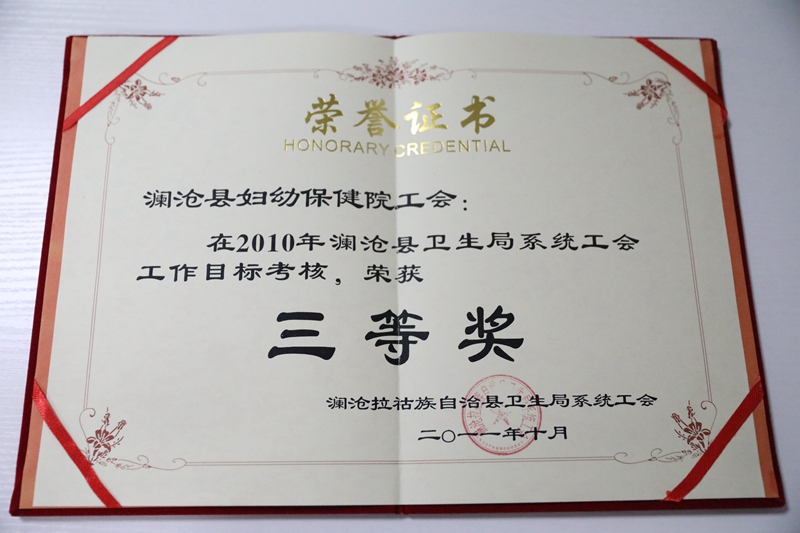 荣誉证书
HONORARY CREDENTIAL
澜沧县妇幼保健院工会：
在2010年澜沧县卫生局系统工会
工作目标考核，荣获
三等奖
澜沧拉祜族自治县卫生局系统工会
二〇一一年十月